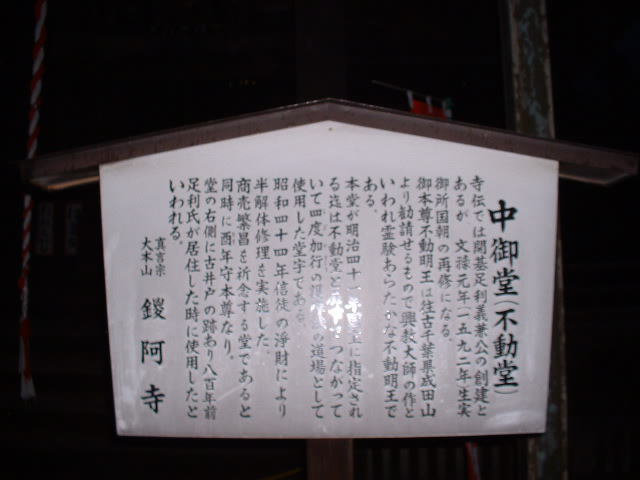 中御堂(不動堂)
寺伝では開基足利義兼公の創建と
あるが文禄元年一五九二年生実
御所国朝の再修になる。
御本尊不動明王は往古千葉県成田山
より勧請せるもので興教大師の作と
いわれ霊験あらたかな不動明王で
ある。
本堂が明治四十一年 に指定され
る迄は不動堂と つながって
いて四度加行の 道場として
使用した堂宇である。
昭和四十四年信徒の浄財により
半解体修理を実施した。
商売繁昌を祈念する堂であると
同時に酉年守本尊なり。
堂の右側に古井戸の跡あり八百年前
足利氏が居住した時に使用したと
いわれる。
真言宗
大本山
鑁阿寺